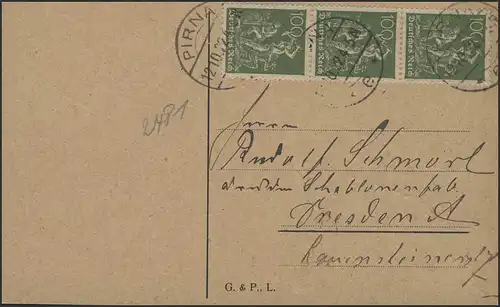 PIRNA
12.10.22
100 100 100
Deutsches Reich Deutsches Reich Deutsches Reich
2481
Herrn
Rudolf Schmorl
Schablonenfab
Dresden A
G. & P., L.